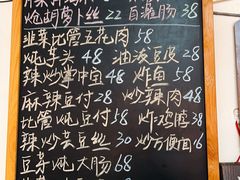 炝胡萝卜丝 22 百灌肠 38
韭菜比管五花肉 58
炖芋头 48 油泼豆皮 28
辣炒掌中宝 48 炸鱼 58
麻辣豆付 28 炒辣肉 48
比管炖豆付 58 炸鸡腰 38
辣炒芸豆丝 30 炒方便面 16
豆芽炖大肠 68